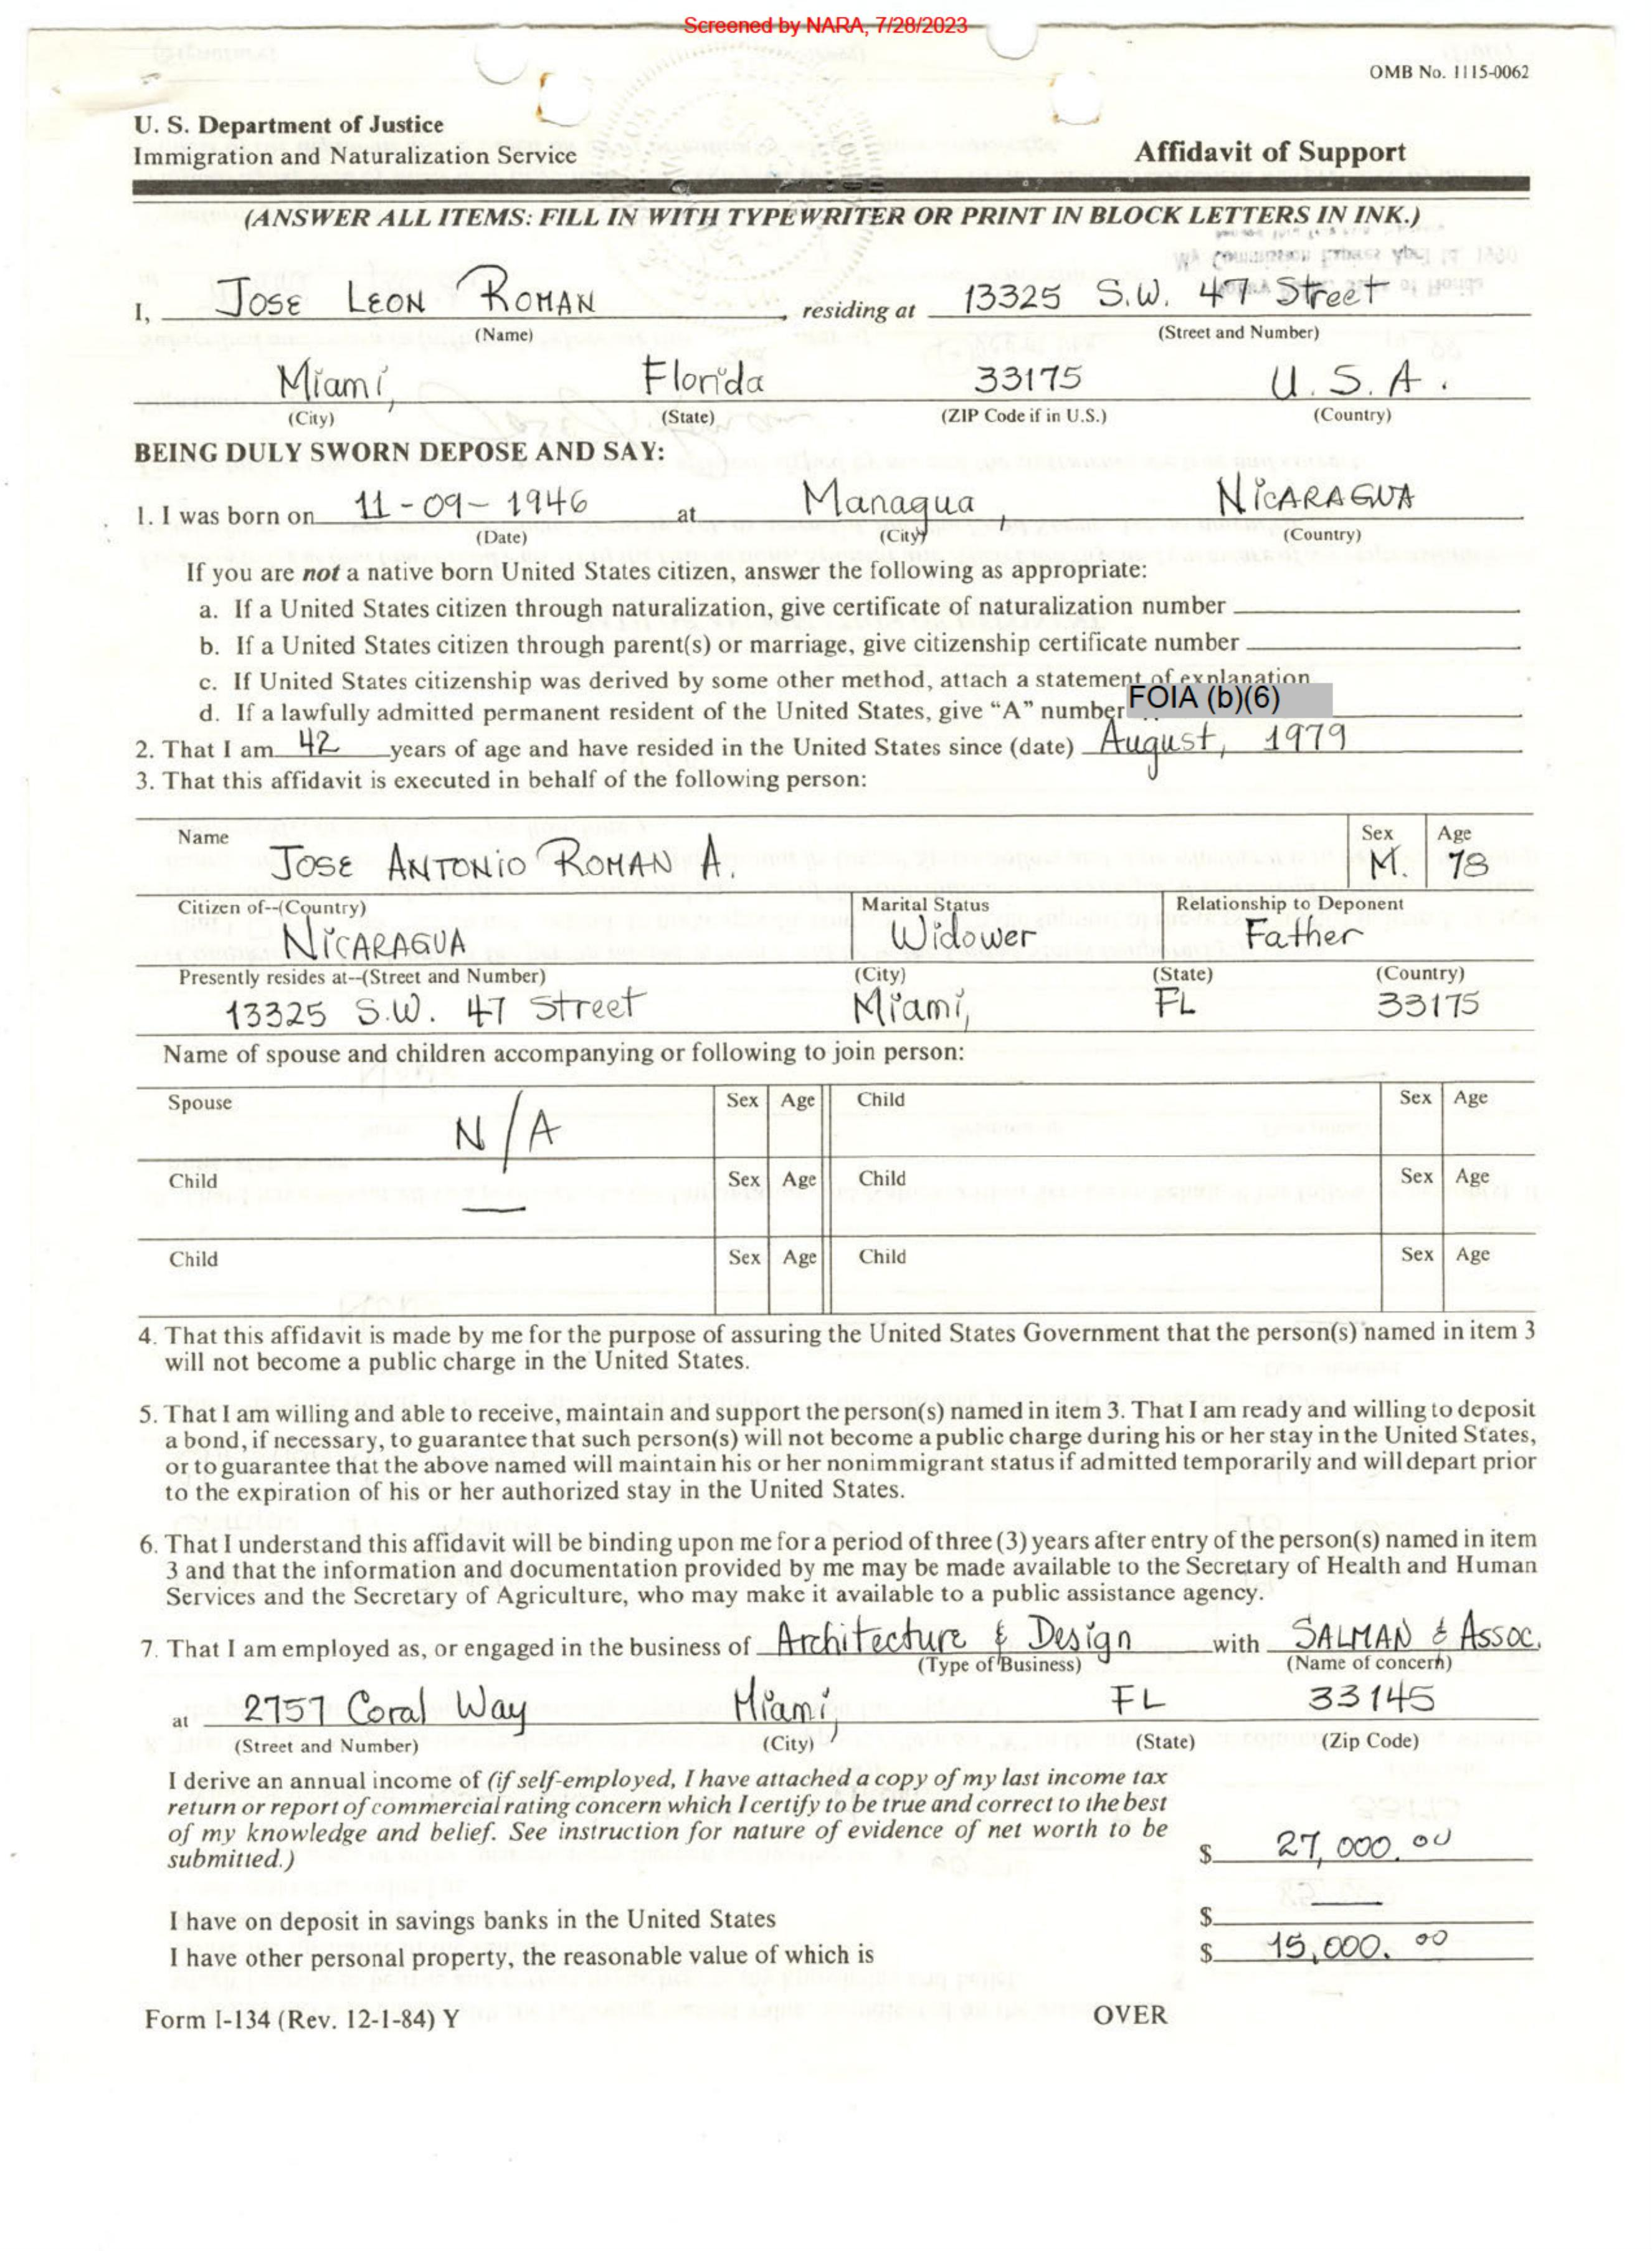 Screened by NARA, 7/28/2023
OMB No. 1115-0062
U. S. Department of Justice
Immigration and Naturalization Service
Affidavit of Support
(ANSWER ALL ITEMS: FILL IN WITH TYPEWRITER OR PRINT IN BLOCK LETTERS IN INK.)
I, JOSE LEON ROMAN, residing at 13325 S.W. 47 Street
(Name) (Street and Number)
Miami, Florida 33175 U.S.A.
(City) (State) (ZIP Code if in U.S.) (Country)
BEING DULY SWORN DEPOSE AND SAY:
1. I was born on 11-09-1946 at Managua, NICARAGUA
(Date) (City) (Country)
If you are not a native born United States citizen, answer the following as appropriate:
a. If a United States citizen through naturalization, give certificate of naturalization number
b. If a United States citizen through parent(s) or marriage, give citizenship certificate number
c. If United States citizenship was derived by some other method, attach a statement of explanation
d. If a lawfully admitted permanent resident of the United States, give "A" number FOIA (b)(6)
2. That I am 42 years of age and have resided in the United States since (date) August, 1979
3. That this affidavit is executed in behalf of the following person:
Name Sex Age
JOSE ANTONIO ROMAN A. M. 78
Citizen of--(Country) Marital Status Relationship to Deponent
NICARAGUA Widower Father
Presently resides at--(Street and Number) (City) (State) (Country)
13325 S.W. 47 Street Miami, FL 33175
Name of spouse and children accompanying or following to join person:
Spouse Sex Age Child Sex Age
N/A
Child Sex Age Child Sex Age
—
Child Sex Age Child Sex Age
4. That this affidavit is made by me for the purpose of assuring the United States Government that the person(s) named in item 3
will not become a public charge in the United States.
5. That I am willing and able to receive, maintain and support the person(s) named in item 3. That I am ready and willing to deposit
a bond, if necessary, to guarantee that such person(s) will not become a public charge during his or her stay in the United States,
or to guarantee that the above named will maintain his or her nonimmigrant status if admitted temporarily and will depart prior
to the expiration of his or her authorized stay in the United States.
6. That I understand this affidavit will be binding upon me for a period of three (3) years after entry of the person(s) named in item
3 and that the information and documentation provided by me may be made available to the Secretary of Health and Human
Services and the Secretary of Agriculture, who may make it available to a public assistance agency.
7. That I am employed as, or engaged in the business of Architecture & Design with SALMAN & ASSOC.
(Type of Business) (Name of concern)
at 2757 Coral Way Miami, FL 33145
(Street and Number) (City) (State) (Zip Code)
I derive an annual income of (if self-employed, I have attached a copy of my last income tax
return or report of commercial rating concern which I certify to be true and correct to the best
of my knowledge and belief. See instruction for nature of evidence of net worth to be
submitted.) $ 27,000.00
I have on deposit in savings banks in the United States $ —
I have other personal property, the reasonable value of which is $ 15,000.00
Form I-134 (Rev. 12-1-84) Y
OVER